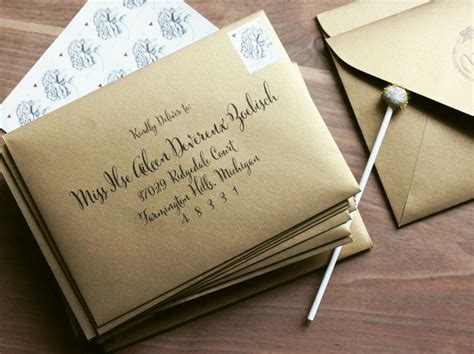 Kindly Deliver to:
Miss Ilse Aileen Devereux Zoelisch
37029 Ridgedale Court
Farmington Hills, Michigan
48331